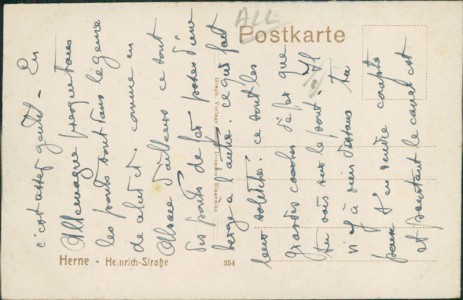 ALL
Postkarte
c'est assez gentil - En
Allemagne presque tous
les ponts sont dans le genre
de celui ci. comme en
Alsace d'ailleurs ce sont
des ponts de fer posés d'une
berge à l'autre : ce qui fait
leur solidité : ce sont les
grands de fer que
tu vois sur le pont. Il
n'y a rien dessous tu
peux t'en rendre compte
et pourtant le canal est
Herne - Heinrich-Straße
354